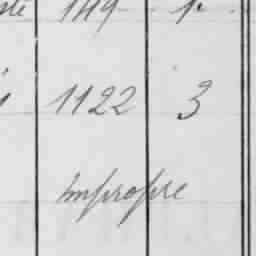 149 1.
1122 3
Impropre